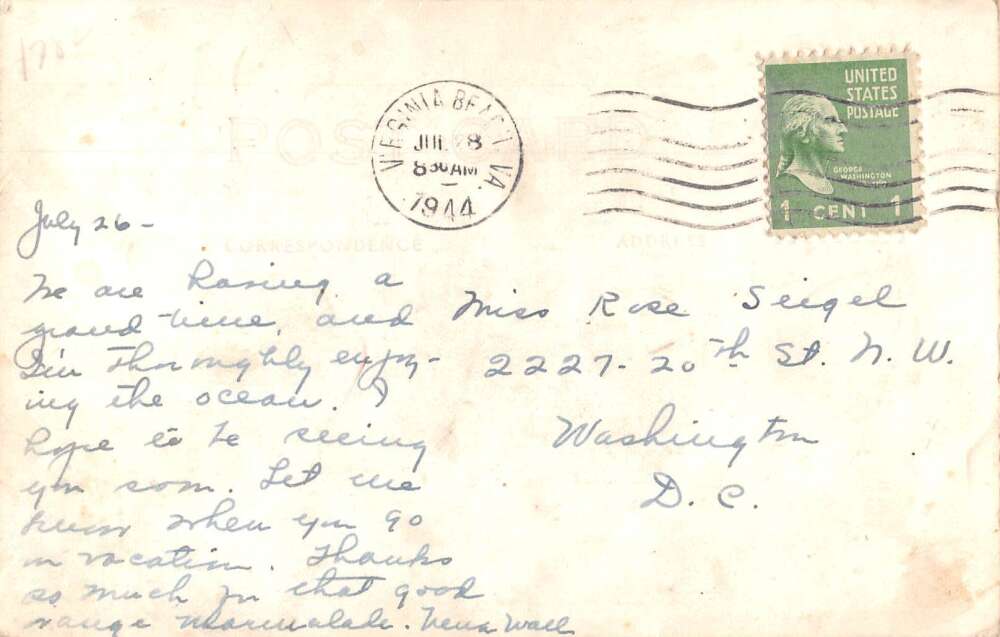 POST CARD
VIRGINIA BEACH VA.
JUL 28
8 30 AM
1944
UNITED
STATES
POSTAGE
GEORGE
WASHINGTON
1 CENT 1
CORRESPONDENCE
ADDRESS
July 26 -
We are having a
grand time, and
I'm thoroughly enjoy-
ing the ocean. I
hope to be seeing
you soon. Let me
know when you go
on vacation. Thanks
so much for that good
range marmalade. Vena Wall
Miss Rose Seigel
2227 - 20th St. N. W.
Washington
D. C.